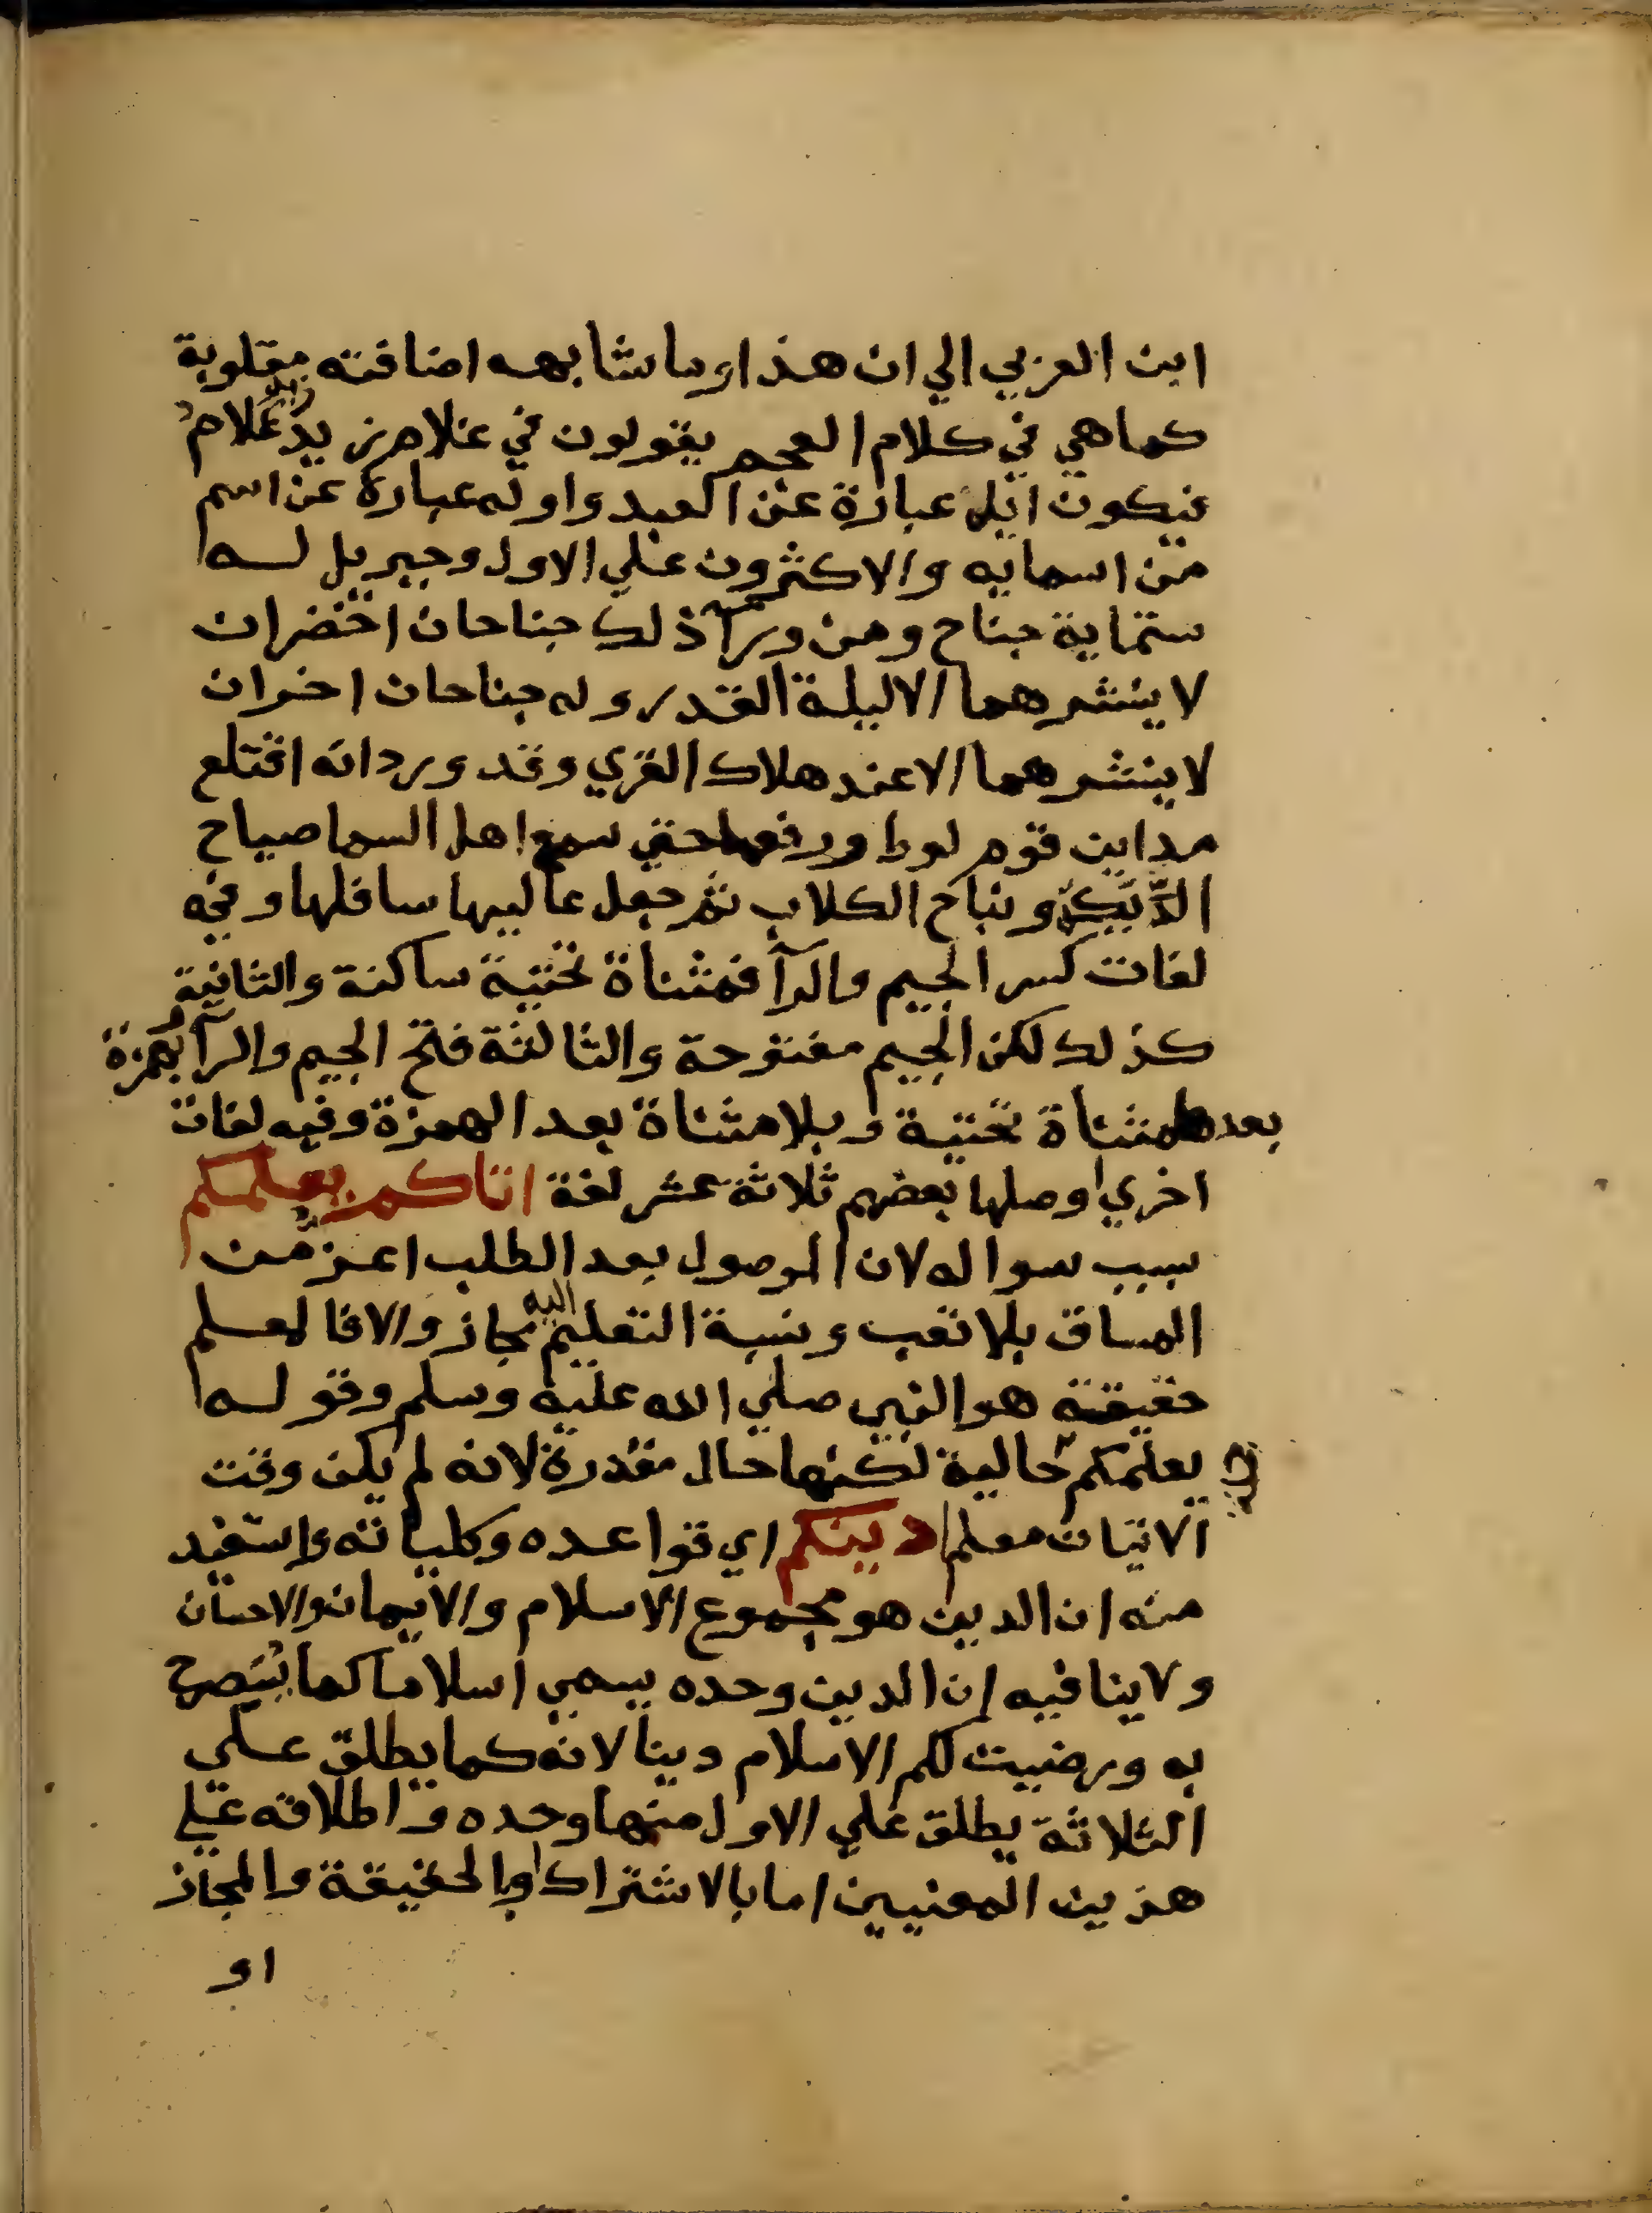 ابن العربي الي ان هذا وما شابهه اضافته مقلوبة
كما هي في كلام العجم يقولون في غلام زيد زيد غلام
فيكون ايل عبارة عن العبد واوله عبارة عن اسم
من اسمايه والاكثرون علي الاول وجبريل له
ستماية جناح ومن ورآ ذلك جناحان اخضران
لا ينشرهما الا ليلة القدر وله جناحان اخران
لا ينشرهما الا عند هلاك القري وقد ورد انه اقتلع
مداين قوم لوط ورفعها حتي سمع اهل السما صياح
الدِّيَكة ونباح الكلاب ثم جعل عاليها سافلها وفيه
لغات كسر الجيم والرآ فمثناة تحتية ساكنة والثانية
كذلك لكن الجيم مفتوحة والثالثة فتح الجيم والرآ وبهمزة
بعدها مثناة تحتية وبلا مثناة بعد الهمزة وفيه لغات
اخري اوصلها بعضهم ثلاثة عشر لغة اتاكم يعلمكم
سبب سواله لان الموصول بعد الطلب اعز من
المساق بلا تعب ونسبة التعليم اليه مجاز والا فالمعلم
حقيقة هو النبي صلي الله عليه وسلم وقوله
يعلمكم حالية لكنها حال مقدرة لانه لم يكن وقت
الاتيان معلما دينكم اي قواعده وكلياته واستفيد
منه ان الدين هو مجموع الاسلام والايمان والاحسان
ولا ينافيه ان الدين وحده يسمي اسلاما كما يصرح
به ورضيت لكم الاسلام دينا لانه كما يطلق علي
الثلاثة يطلق علي الاول منها وحده واطلاقه علي
هذين المعنيين اما بالاشتراك او بالحقيقة والمجاز
او